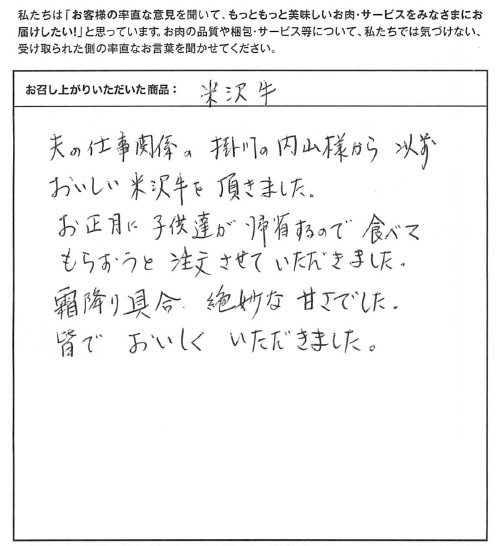 私たちは「お客様の率直な意見を聞いて、もっともっと美味しいお肉・サービスをみなさまにお
届けしたい!」と思っています。お肉の品質や梱包・サービス等について、私たちでは気づけない、
受け取られた側の率直なお言葉を聞かせてください。
お召し上がりいただいた商品： 米沢牛
夫の仕事関係の掛川の内山様から以前
おいしい米沢牛を頂きました。
お正月に子供達が帰省するので食べて
もらおうと注文させていただきました。
霜降り具合、絶妙な甘さでした。
皆でおいしくいただきました。